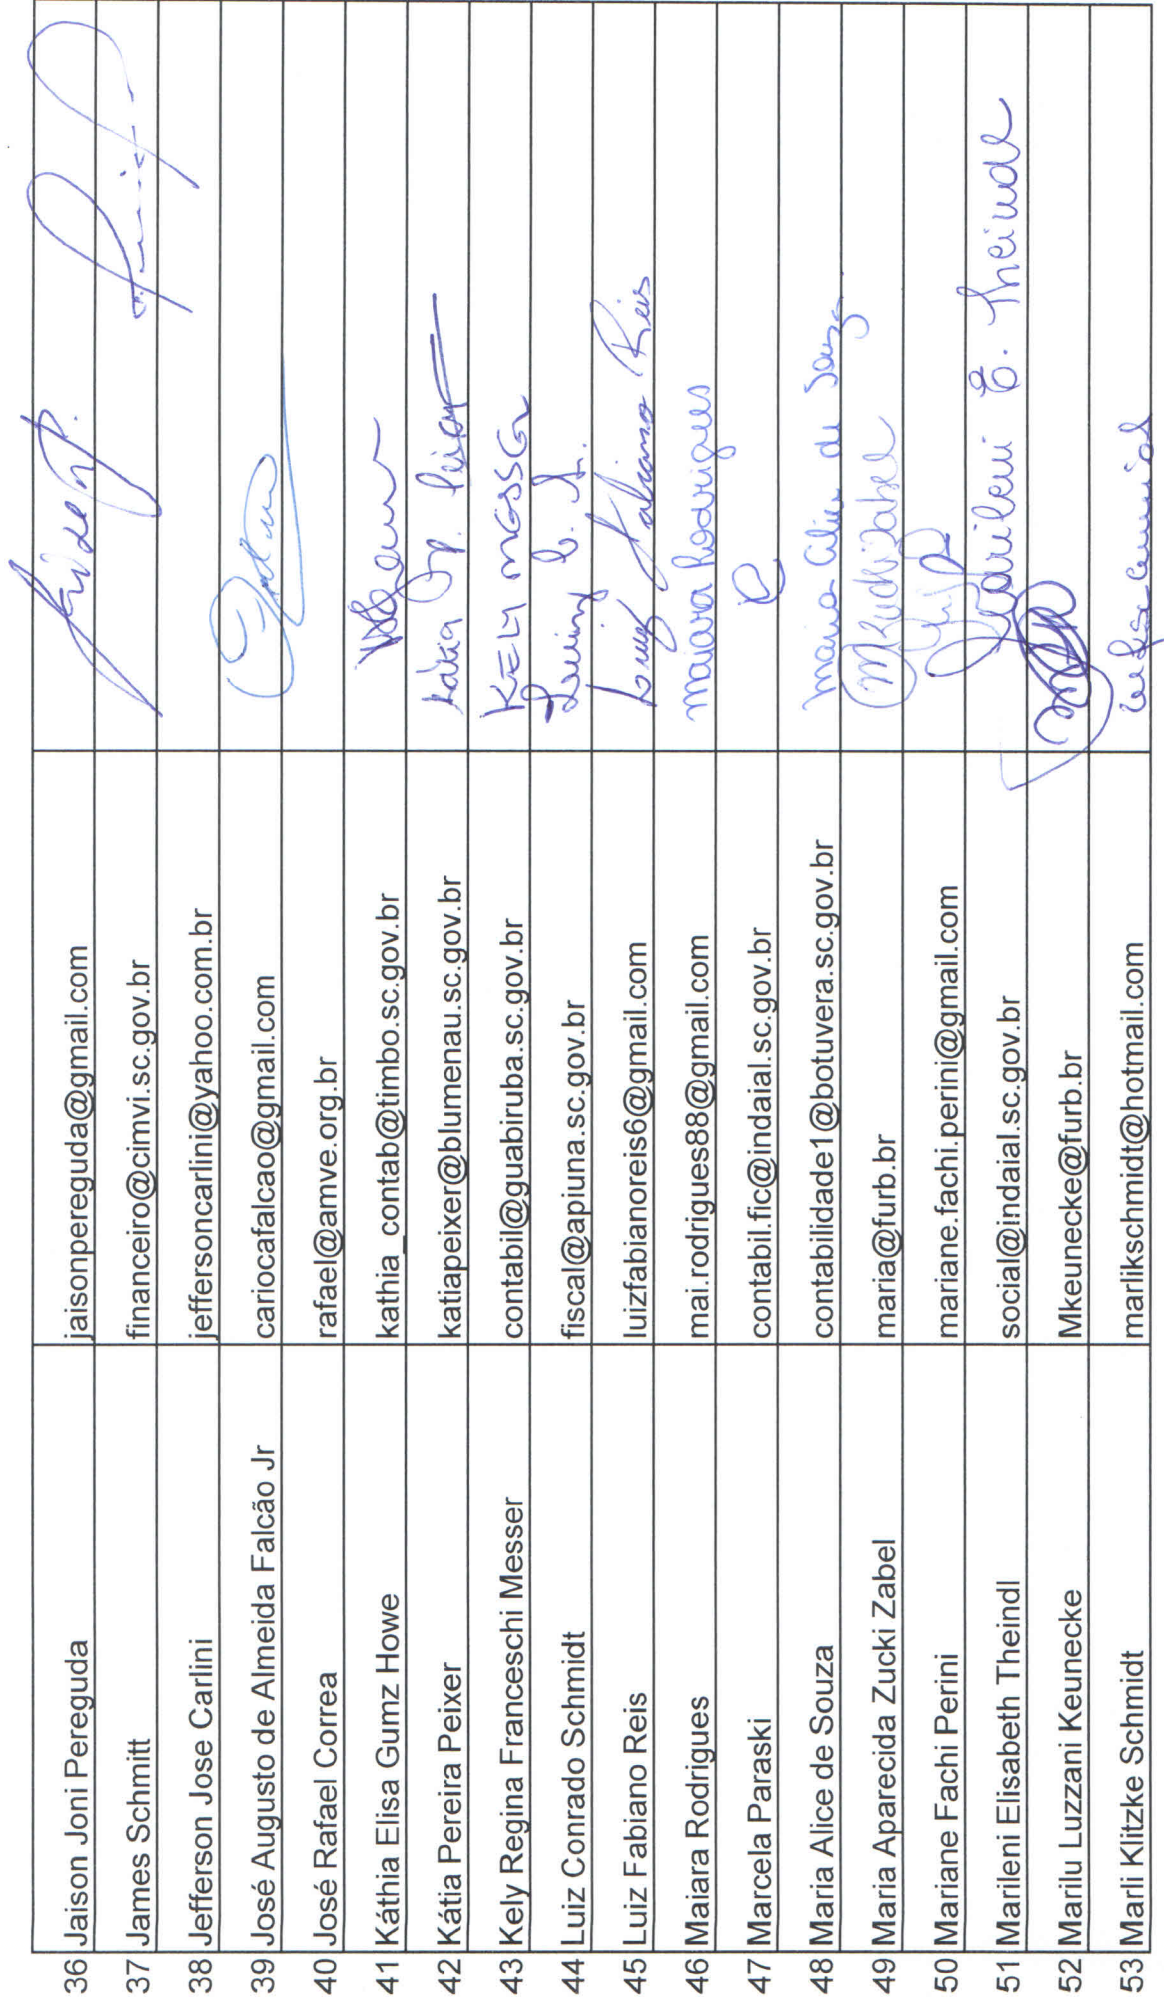 36 Jaison Joni Pereguda jaisonpereguda@gmail.com
37 James Schmitt financeiro@cimvi.sc.gov.br
38 Jefferson Jose Carlini jeffersoncarlini@yahoo.com.br
39 José Augusto de Almeida Falcão Jr cariocafalcao@gmail.com
40 José Rafael Correa rafael@amve.org.br
41 Káthia Elisa Gumz Howe kathia_contab@timbo.sc.gov.br
42 Kátia Pereira Peixer katiapeixer@blumenau.sc.gov.br Kátia P. Peixer
43 Kely Regina Franceschi Messer contabil@guabiruba.sc.gov.br KELY
44 Luiz Conrado Schmidt fiscal@apiuna.sc.gov.br
45 Luiz Fabiano Reis luizfabianoreis6@gmail.com Luiz Fabiano Reis
46 Maiara Rodrigues mai.rodrigues88@gmail.com Maiara Rodrigues
47 Marcela Paraski contabil.fic@indaial.sc.gov.br
48 Maria Alice de Souza contabilidade1@botuvera.sc.gov.br Maria Alice de Souza
49 Maria Aparecida Zucki Zabel maria@furb.br MZuckiZabel
50 Mariane Fachi Perini mariane.fachi.perini@gmail.com
51 Marileni Elisabeth Theindl social@indaial.sc.gov.br Marileni E. Theindl
52 Marilu Luzzani Keunecke Mkeunecke@furb.br
53 Marli Klitzke Schmidt marlikschmidt@hotmail.com